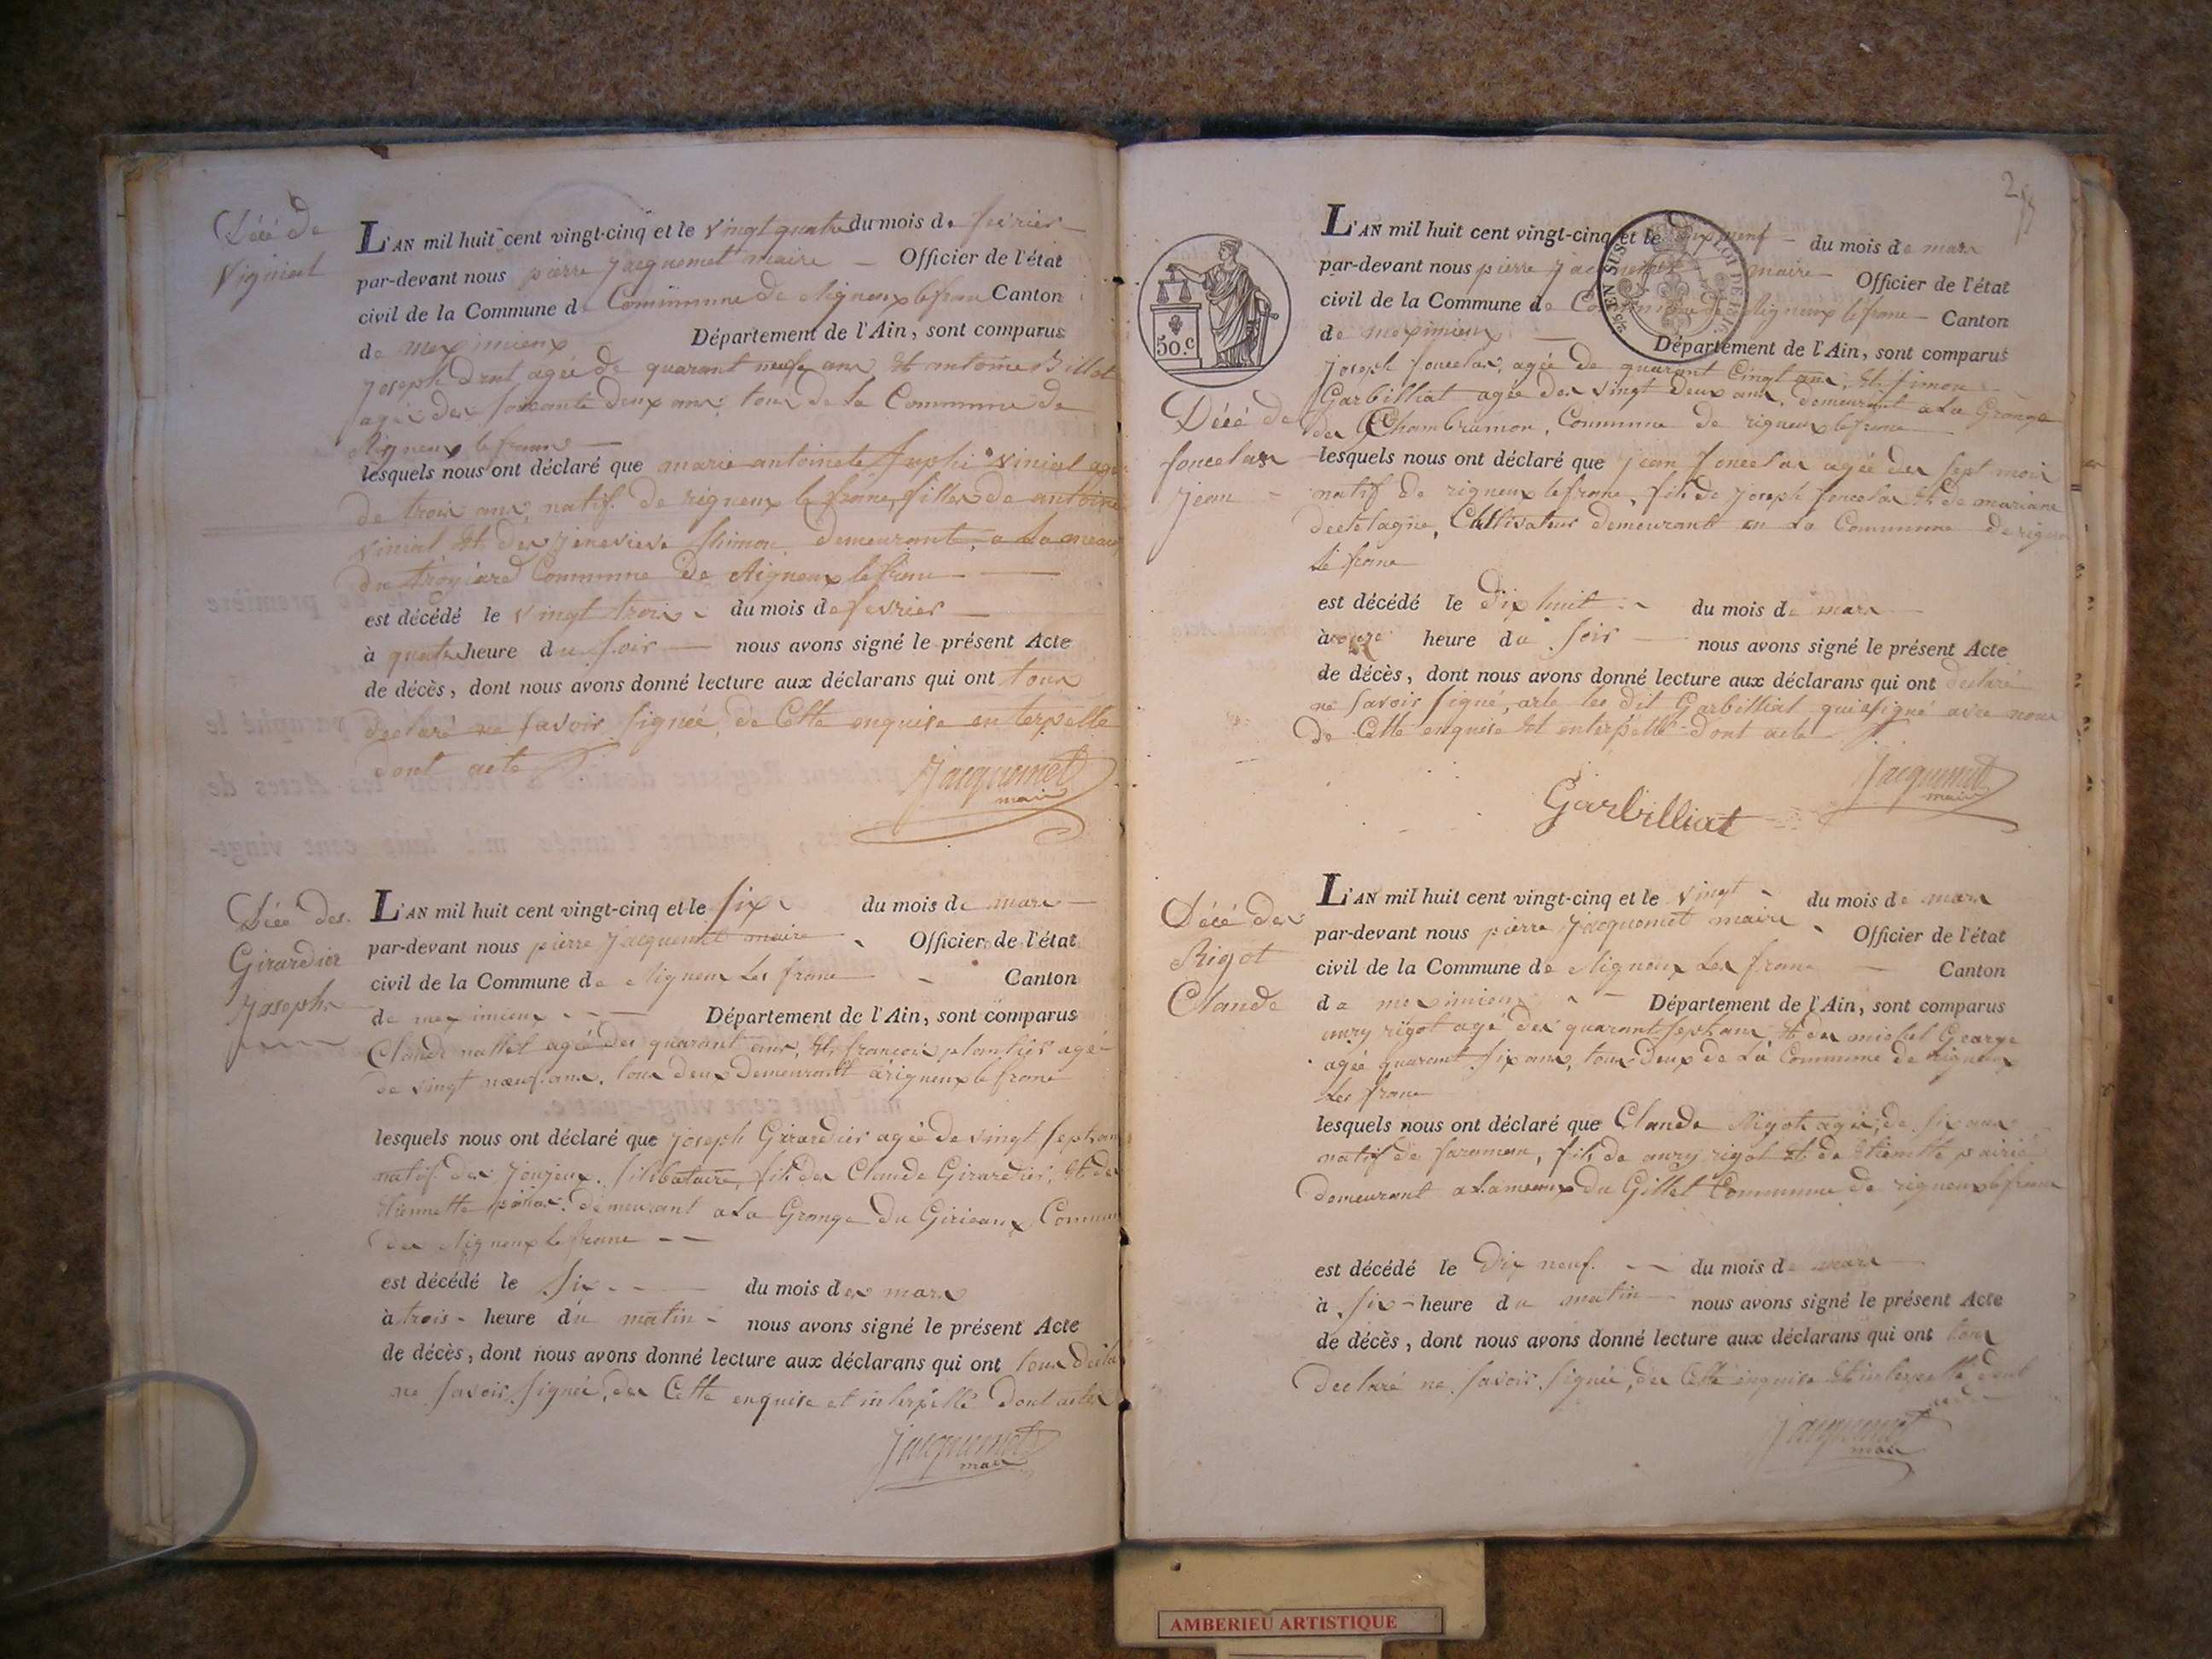 Décé de
Vignial
L'AN mil huit cent vingt-cinq et le vingt quatre du mois de fevrier
par-devant nous pierre jacquemet maire Officier de l'état
civil de la Commune de Commune de Rigneux lefranc Canton
de meximieux Département de l'Ain, sont comparus
joseph agée de quarant neuf ans Et antoine Billet
agée de soixante deux ans, tous de la Commune de
Rigneux le franc
lesquels nous ont déclaré que marie antoinete vinial agé
de trois ans, natif de rigneux le franc, filles de antoine
vinial Et de jenevieve Shimon demeurant, a
du Commune de Rigneux le franc
est décédé le vingt trois du mois de fevrier
à quatre heure du soir nous avons signé le présent Acte
de décès, dont nous avons donné lecture aux déclarans qui ont tous
declaré ne savoir signée, de Cette enquise enterpelle
dont acte
Jacquemet
maire
Décé des
Girardier
joseph
L'AN mil huit cent vingt-cinq et le six du mois de mars
par-devant nous pierre jacquemet maire Officier de l'état
civil de la Commune de Rigneux Les franc Canton
de meximieux Département de l'Ain, sont comparus
Claude nallet agée des quarant ans, Et françois plantier agé
de vingt nœuf ans, tous deux Demeurantt a rigneux le franc
lesquels nous ont déclaré que joseph Girardier agée de vingt sept ans
natif des joujeux, silibataire, fils des Claude Girardier, Et des
Etiennette demeurant a La Grange du Girieaux, Commun
des Rigneux le franc
est décédé le six du mois des mars
à trois heure du matin nous avons signé le présent Acte
de décès, dont nous avons donné lecture aux déclarans qui ont tous
ne savoir signée, des Cette enquise et interpellé Dont actes
Jacquemet
maire
2
50.C
EN SUS LOI DE 1816
L'AN mil huit cent vingt-cinq et le dix neuf du mois de mars
par-devant nous pierre jacquemet maire Officier de l'état
civil de la Commune de Commune de Rigneux lefranc Canton
de meximieux Département de l'Ain, sont comparus
Décé de
foncelas
jean
joseph foncelas, agée de quarant Cingt ans, Et simon
Garbilliat agée des vingt deux ans, demeurant a La Grange
des Chambrumon, Commune de rigneux lefranc
lesquels nous ont déclaré que jean foncelas agée des sept mois
natif de rigneux lefranc, fils de joseph foncelas Et de mariane
Cultivateur demeurantt en La Commune de
Le franc
est décédé le Dix huit du mois de mars
à onze heure du soir nous avons signé le présent Acte
de décès, dont nous avons donné lecture aux déclarans qui ont declaré
ne savoir signé, dit Garbilliat qui a signé avec nous
de Cette enquise Et enterpellé Dont acte
Jacquemet
maire
Garbilliat
Décé des
Rigot
Claude
L'AN mil huit cent vingt-cinq et le vingt du mois de mars
par-devant nous pierre jacquemet maire Officier de l'état
civil de la Commune de Rigneux Les franc Canton
de meximieux Département de l'Ain, sont comparus
aury rigot agé des quarant sept ans Et des michel George
agée quarant six ans, tous Deux de La Commune de rigneux
Les franc
lesquels nous ont déclaré que Claude Rigot agée, de six ans
natif de faraman, fils de aury rigot Et de Etienette
Demeurant a du Gillet Commune de rigneux lefranc
est décédé le Dix neuf du mois de mars
à six heure du matin nous avons signé le présent Acte
de décès, dont nous avons donné lecture aux déclarans qui ont tous
declaré ne savoir signée, des Cette enquise Et interpellé dont
acte
Jacquemet
maire
AMBERIEU ARTISTIQUE